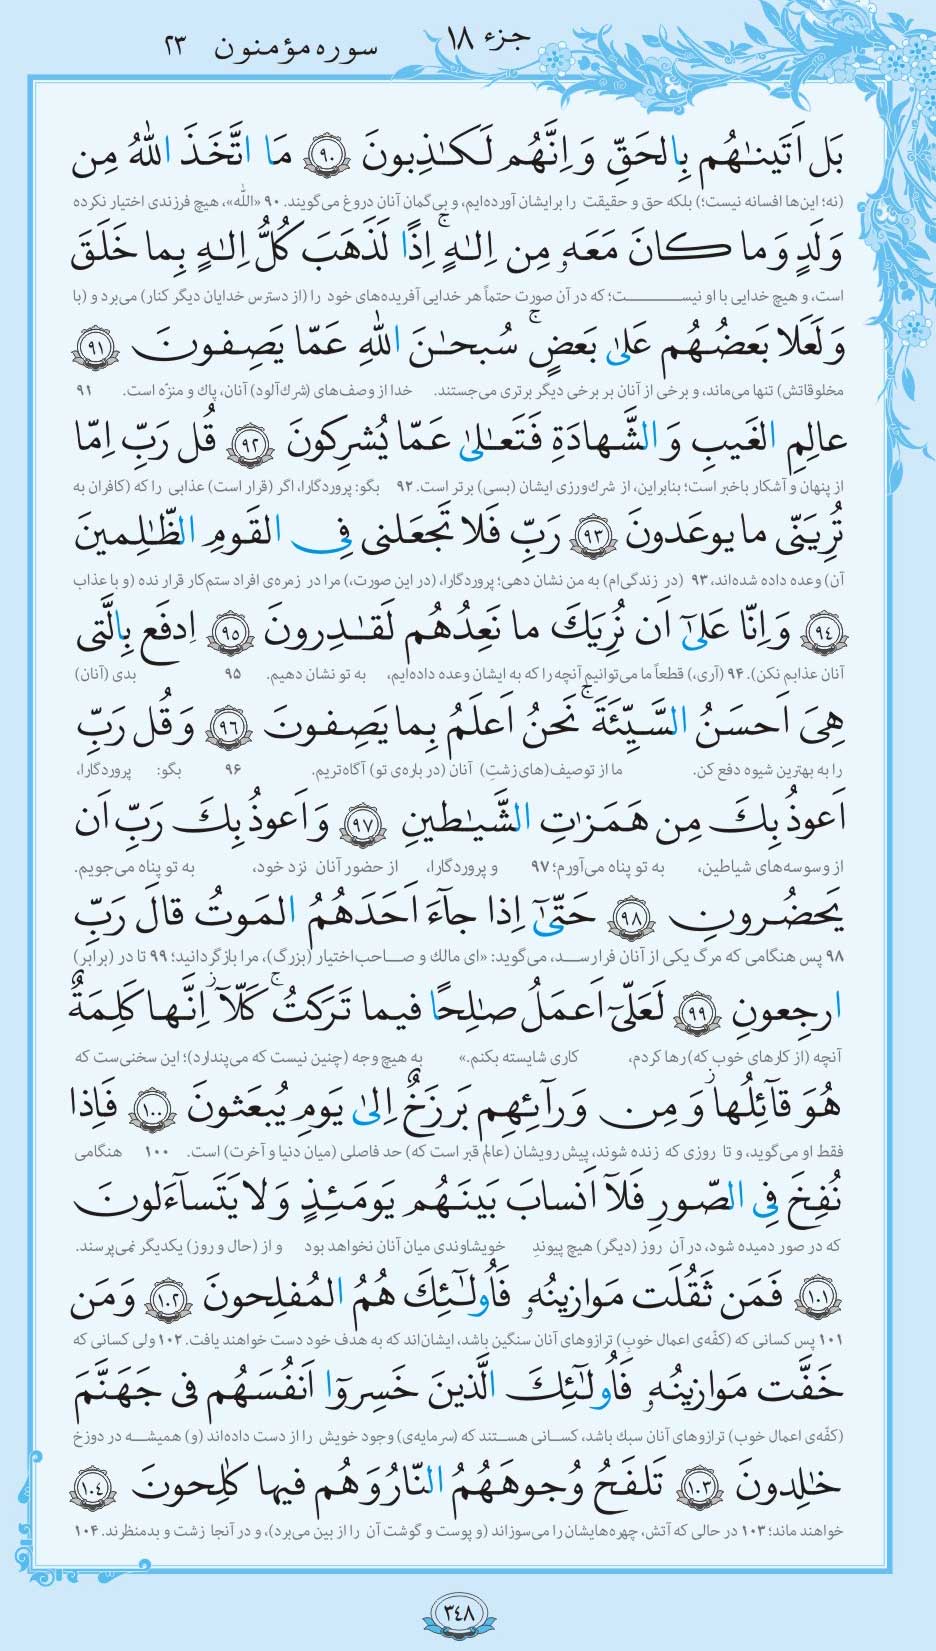 جزء ۱۸
سوره مؤمنون ۲۳
بَل اَتَینٰهُم بِالحَقِّ وَ اِنَّهُم لَكٰذِبونَ ﴿۹۰﴾ مَا اتَّخَذَ اللهُ مِن
(نه؛ این‌ها افسانه نیست؛) بلکه حق و حقیقت را برایشان آورده‌ایم، و بی‌گمان آنان دروغ می‌گویند. ۹۰ «اللّه»، هیچ فرزندی اختیار نکرده
وَلَدٍ وَ ما كانَ مَعَهٗ مِن اِلٰهٍ ۚ اِذًا لَذَهَبَ كُلُّ اِلٰهٍ بِما خَلَقَ
است، و هیچ خدایی با او نیست؛ که در آن صورت حتماً هر خدایی آفریده‌های خود را (از دسترس خدایان دیگر کنار) می‌برد و (با
وَ لَعَلا بَعضُهُم عَلىٰ بَعضٍ ۚ سُبحٰنَ اللهِ عَمّا یَصِفونَ ﴿۹۱﴾
مخلوقاتش) تنها می‌ماند، و برخی از آنان بر برخی دیگر برتری می‌جستند. خدا از وصف‌های (شرك‌آلود) آنان، پاك و منزّه است. ۹۱
عالِمِ الغَیبِ وَ الشَّهادَةِ فَتَعالىٰ عَمّا یُشرِكونَ ﴿۹۲﴾ قُل رَبِّ اِمّا
از پنهان و آشکار باخبر است؛ بنابراین، از شرك‌ورزی ایشان (بسی) برتر است. ۹۲ بگو: پروردگارا، اگر (قرار است) عذابی را که (کافران به
تُرِیَنّی ما یوعَدونَ ﴿۹۳﴾ رَبِّ فَلا تَجعَلنی فِی القَومِ الظّٰلِمینَ
آن) وعده داده شده‌اند، ۹۳ (در زندگی‌ام) به من نشان دهی؛ پروردگارا، (در این صورت،) مرا در زمره‌ی افراد ستم‌کار قرار نده (و با عذاب
﴿۹۴﴾ وَ اِنّا عَلىٰٓ اَن نُرِیَكَ ما نَعِدُهُم لَقٰدِرونَ ﴿۹۵﴾ اِدفَع بِالَّتی
آنان عذابم نکن). ۹۴ (آری،) قطعاً ما می‌توانیم آنچه را که به ایشان وعده داده‌ایم، به تو نشان دهیم. ۹۵ بدی (آنان)
هِیَ اَحسَنُ السَّیِّئَةَ ۚ نَحنُ اَعلَمُ بِما یَصِفونَ ﴿۹۶﴾ وَ قُل رَبِّ
را به بهترین شیوه دفع کن. ما از توصیف(های زشتِ) آنان (در باره‌ی تو) آگاه‌تریم. ۹۶ بگو: پروردگارا،
اَعوذُ بِكَ مِن هَمَزٰتِ الشَّیٰطینِ ﴿۹۷﴾ وَ اَعوذُ بِكَ رَبِّ اَن
از وسوسه‌های شیاطین، به تو پناه می‌آورم؛ ۹۷ و پروردگارا، از حضور آنان نزد خود، به تو پناه می‌جویم.
یَحضُرونِ ﴿۹۸﴾ حَتّىٰٓ اِذا جآءَ اَحَدَهُمُ المَوتُ قالَ رَبِّ
۹۸ پس هنگامی که مرگ یکی از آنان فرارسد، می‌گوید: «ای مالك و صاحب‌اختیار (بزرگ)، مرا بازگردانید؛ ۹۹ تا در (برابر)
ارجِعونِ ﴿۹۹﴾ لَعَلّیٓ اَعمَلُ صٰلِحًا فیما تَرَكتُ ۚ كَلّآ ۚ اِنَّها كَلِمَةٌ
آنچه (از کارهای خوب که) رها کردم، کاری شایسته بکنم.» به هیچ وجه (چنین نیست که می‌پندارد)؛ این سخنی‌ست که
هُوَ قآئِلُها ۖ وَ مِن وَرآئِهِم بَرزَخٌ اِلىٰ یَومِ یُبعَثونَ ﴿۱۰۰﴾ فَاِذا
فقط او می‌گوید، و تا روزی که زنده شوند، پیش رویشان (عالم قبر است که) حد فاصلی (میان دنیا و آخرت) است. ۱۰۰ هنگامی
نُفِخَ فِی الصّورِ فَلآ اَنسابَ بَینَهُم یَومَئِذٍ وَ لا یَتَسآءَلونَ
که در صور دمیده شود، در آن روز (دیگر) هیچ پیوندِ خویشاوندی میان آنان نخواهد بود و از (حال و روز) یکدیگر نمی‌پرسند.
﴿۱۰۱﴾ فَمَن ثَقُلَت مَوازینُهٗ فَاُولٰٓئِكَ هُمُ المُفلِحونَ ﴿۱۰۲﴾ وَ مَن
۱۰۱ پس کسانی که (کفّه‌ی اعمال خوبِ) ترازوهای آنان سنگین باشد، ایشان‌اند که به هدف خود دست خواهند یافت. ۱۰۲ ولی کسانی که
خَفَّت مَوازینُهٗ فَاُولٰٓئِكَ الَّذینَ خَسِروٓا اَنفُسَهُم فی جَهَنَّمَ
(کفّه‌ی اعمال خوب) ترازوهای آنان سبك باشد، کسانی هستند که (سرمایه‌ی) وجود خویش را از دست داده‌اند (و) همیشه در دوزخ
خٰلِدونَ ﴿۱۰۳﴾ تَلفَحُ وُجوهَهُمُ النّارُ وَ هُم فیها كٰلِحونَ ﴿۱۰۴﴾
خواهند ماند؛ ۱۰۳ در حالی که آتش، چهره‌هایشان را می‌سوزاند (و پوست و گوشت آن را از بین می‌برد)، و در آنجا زشت و بدمنظرند. ۱۰۴
۳۴۸